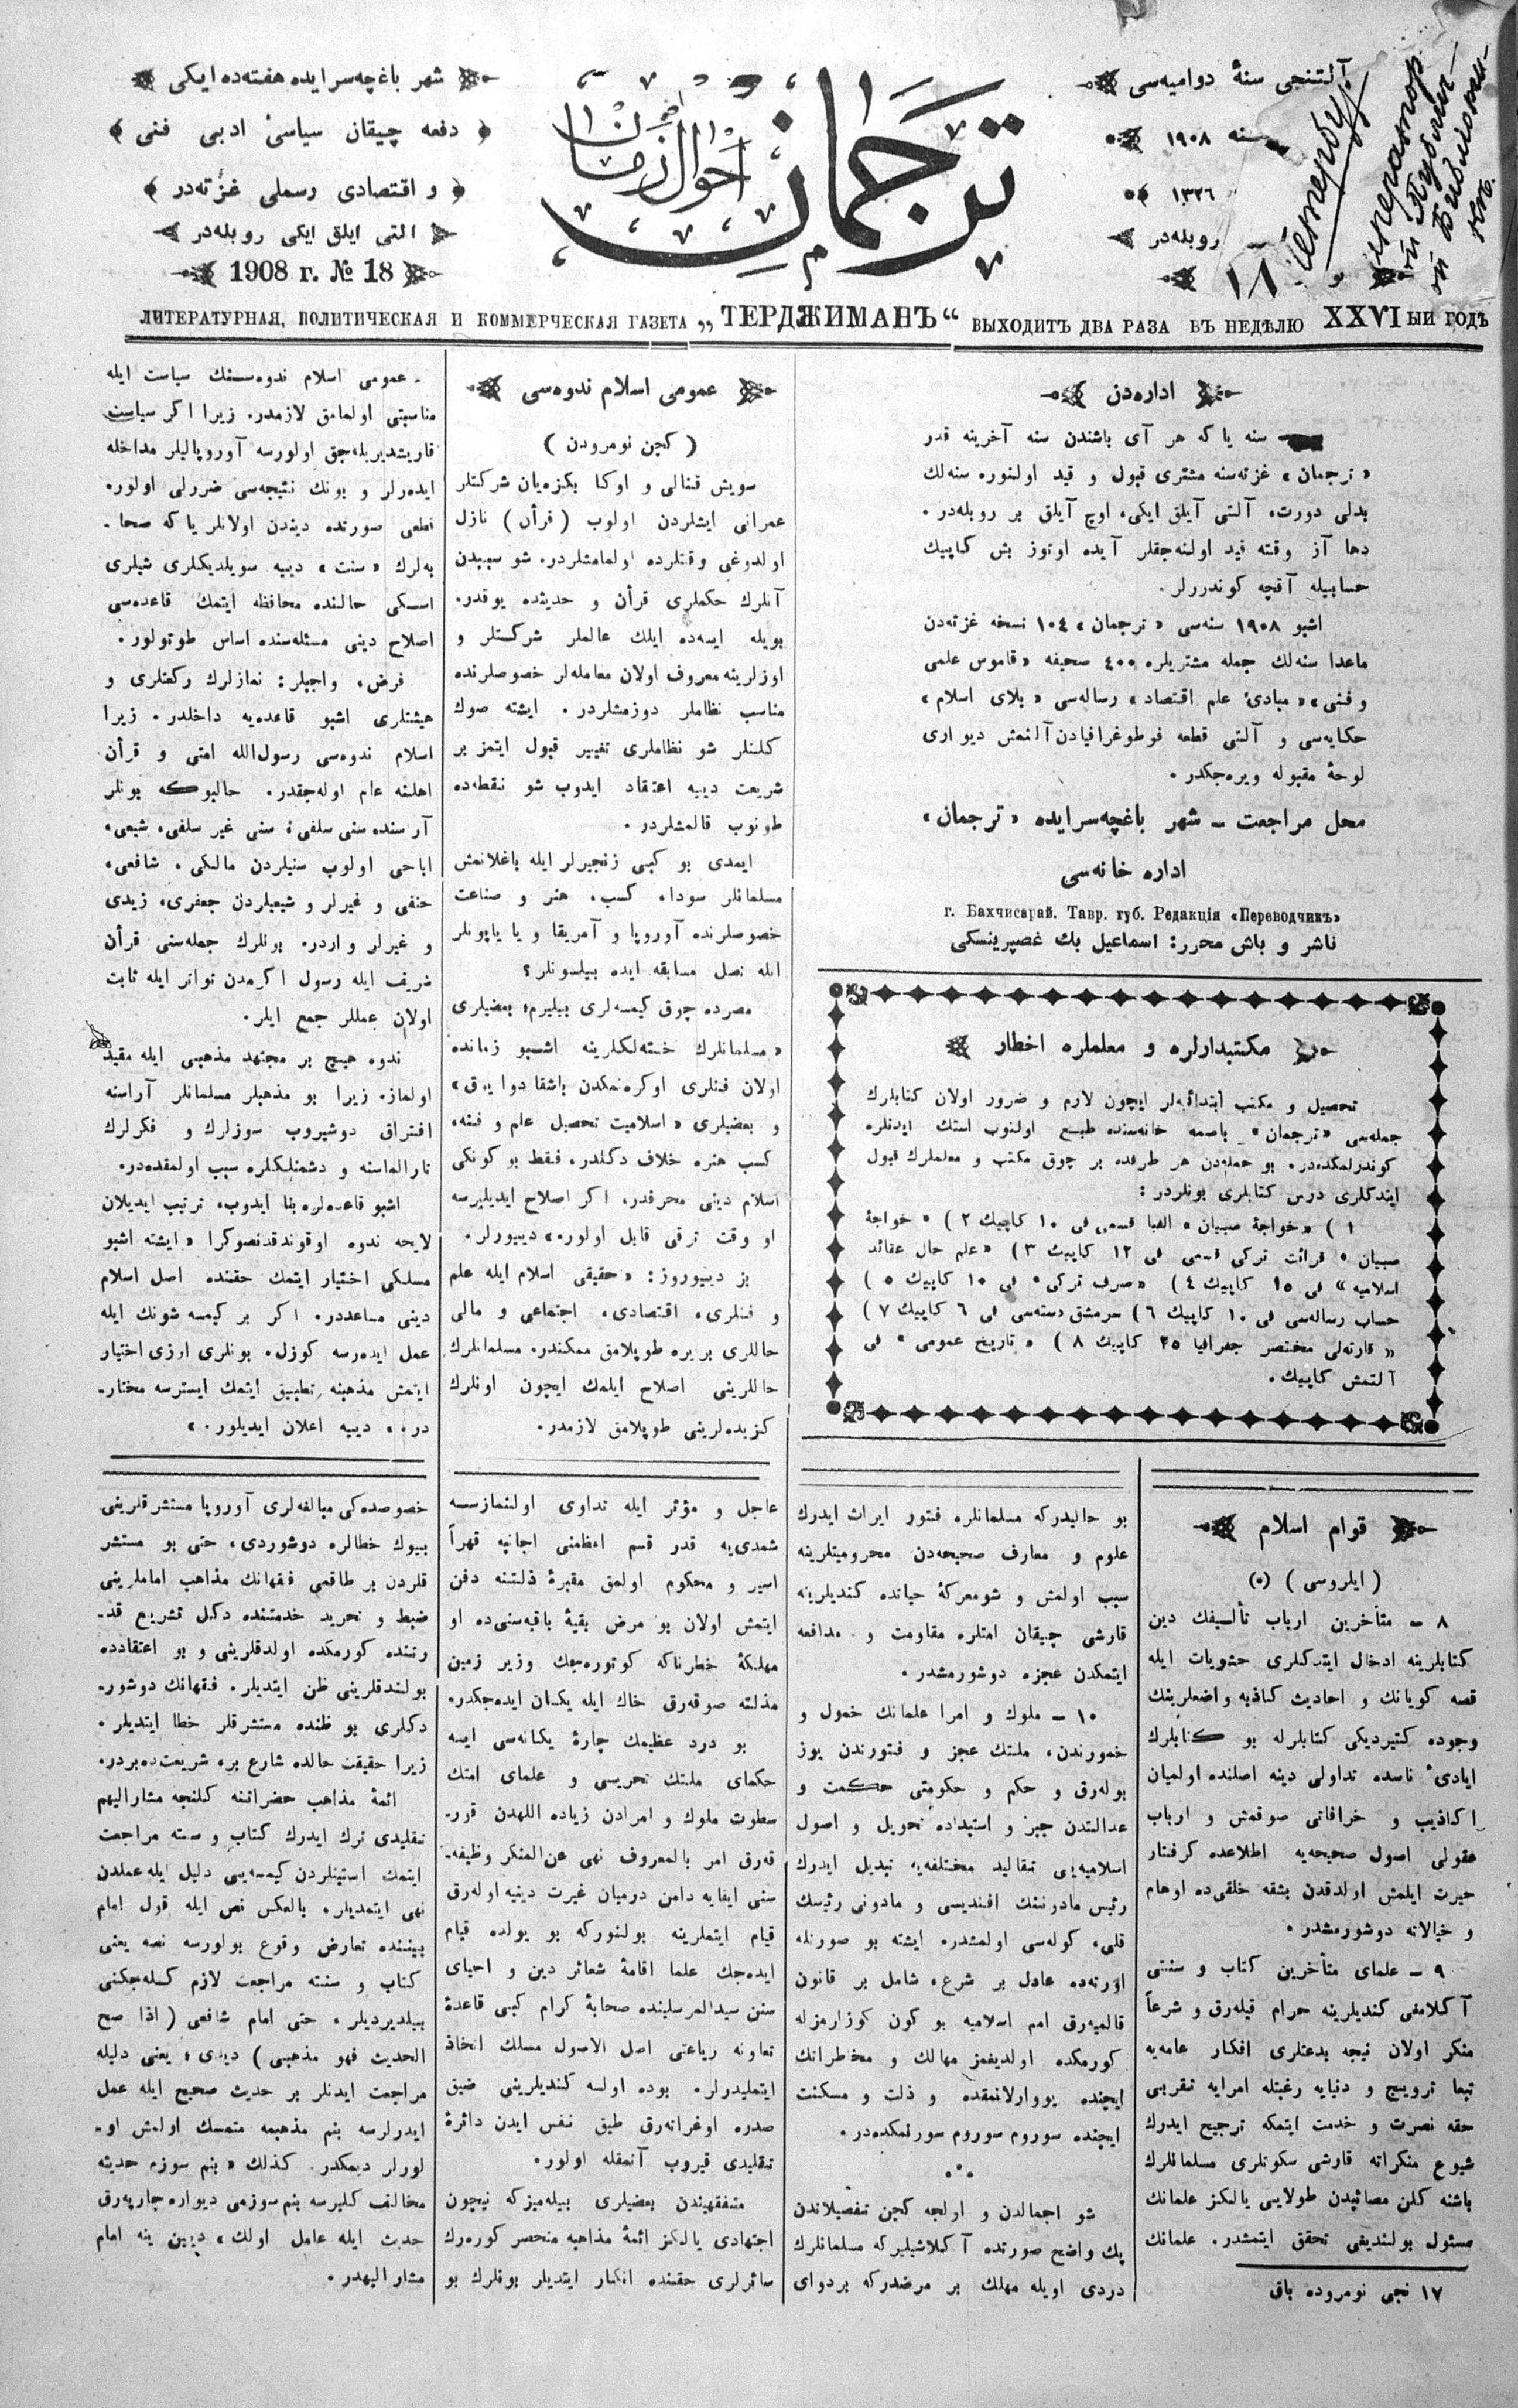 شهر باغچه‌سرایده هفته‌ده ایکی
دفعه چیقان سیاسیٔ ادبی فنی
و اقتصادی رسملی غزته‌در
التی ایلق ایکی روبله‌در
1908 г. № 18
ترجمان
احوال زمان
آلتنجی سنهٔ دوامیه‌سی
سنه ١٩٠٨
١٣٢٦
روبله‌در
١٨
ЛИТЕРАТУРНАЯ, ПОЛИТИЧЕСКАЯ И КОММЕРЧЕСКАЯ ГАЗЕТА „ТЕРДЖИМАНЪ“ ВЫХОДИТЪ ДВА РАЗА ВЪ НЕДѢЛЮ XXVI ЫЙ ГОДЪ
اداره‌دن
سنه یا که هر آی باشندن سنه آخرینه قدر
«ترجمان» غزته‌سنه مشتری قبول و قید اولنور، سنه‌لك
بدلی دورت، آلتی آیلق ایکی، اوچ آیلق بر روبله‌در.
دها آز وقته قید اولنه‌جقلر آیده اوتوز بش کاپیك
حسابیله آقچه کوندررلر.
اشبو ١٩٠٨ سنه‌سی «ترجمان» ١٠٤ نسخه غزته‌دن
ماعدا سنه‌لك جمله مشتریلره ٤٠٠ صحیفه «قاموس علمی
و فنی» «مبادیٔ علم اقتصاد» رساله‌سی «بلای اسلام»
حکایه‌سی و آلتی قطعه فوطوغرافیادن آلنمش دیواری
لوحهٔ مقبوله ویره‌جکدر.
محل مراجعت ــ شهر باغچه‌سرایده «ترجمان»
اداره خانه‌سی
г. Бахчисарай. Тавр. губ. Редакція «Переводчикъ»
ناشر و باش محرر: اسماعیل بك غصپرینسکی
مکتبدارلره و معلملره اخطار
تحصیل و مکتب ابتدائیه‌لر ایچون لازم و ضرور اولان کتابلرك
جمله‌سی «ترجمان» باصمه خانه‌سنده طبع اولنوب استك ایدنلره
کوندرلمکده‌در. بو جمله‌دن هر طرفده بر چوق مکتب و معلملرك قبول
ایتدکلری درس کتابلری بونلردر:
١) «خواجهٔ صبیان» الفبا قسمی فی ١٠ کاپیك ٢) «خواجهٔ
صبیان» قرائت ترکی قسمی فی ١٢ کاپیك ٣) «علم حال عقائد
اسلامیه» فی ١٥ کاپیك ٤) «صرف ترکی» فی ١٠ کاپیك ٥)
حساب رساله‌سی فی ١٠ کاپیك ٦) سرمشق دسته‌سی فی ٦ کاپیك ٧)
«قارته‌لی مختصر جغرافیا ٢٥ کاپیك ٨) «تاریخ عمومی» فی
آلتمش کاپیك.
عمومی اسلام ندوه‌سی
(کچن نومرودن)
سویش قنالی و اوکا بکزه‌یان شرکتلر
عمرانی ایشلردن اولوب (قرأن) نازل
اولدوغی وقتلرده اولمامشلردر. شو سببدن
آنلرك حکملری قرأن و حدیثده یوقدر.
بویله ایسه‌ده ایلك عالملر شرکتلر و
اوزلرینه معروف اولان معامله‌لر خصوصلرنده
مناسب نظاملر دوزمشلردر. ایشته صوك
کلنلر شو نظاملری تغییر قبول ایتمز بر
شریعت دییه اعتقاد ایدوب شو نقطه‌ده
طونوب قالمشلردر.
ایمدی بو کبی زنجیرلر ایله باغلانمش
مسلمانلر سودا، کسب، هنر و صناعت
خصوصلرنده آوروپا و آمریقا و یا یاپونلر
ایله نصل مسابقه ایده بیلسونلر؟
مصرده چوق کیمسه‌لری بیلیرم؛ بعضیلری
«مسلمانلرك خسته‌لکلرینه اشبو زمانده
اولان فنلری اوکره‌نمکدن باشقا دوا یوق»
و بعضیلری «اسلامیت تحصیل علم و فنه،
کسب هنره خلاف دکلدر، فقط بو کونکی
اسلام دینی محرفدر، اکر اصلاح ایدیلیرسه
او وقت ترقی قابل اولور» دییورلر.
بز دییوروز: «حقیقی اسلام ایله علم
و فنلری، اقتصادی، اجتماعی و مالی
حاللری بریره طوپلامق ممکندر. مسلمانلرك
حاللرینی اصلاح ایلمك ایچون اونلرك
کزیده‌لرینی طوپلامق لازمدر.
ــ عمومی اسلام ندوه‌سنك سیاست ایله
مناسبتی اولمامق لازمدر. زیرا اکر سیاست
قاریشدیریله‌جق اولورسه آوروپالیلر مداخله
ایده‌رلر و بونك نتیجه‌سی ضررلی اولور.
قطعی صورنده دیندن اولانلر یا که صحا-
به‌لرك «سنت» دییه سویلدیکلری شیلری
اسکی حالنده محافظه ایتمك قاعده‌سی
اصلاح دینی مسئله‌سنده اساس طوتولور.
فرض، واجبلر: نمازلرك رکعتلری و
هیئتلری اشبو قاعده‌یه داخلدر. زیرا
اسلام ندوه‌سی رسول‌الله امتی و قرأن
اهلنه عام اوله‌جقدر. حالبوکه بونلر
آرسنده سنی سلفی، سنی غیر سلفی، شیعی،
اباحی اولوب سنیلردن مالکی، شافعی،
حنفی و غیرلر و شیعیلردن جعفری، زیدی
و غیرلر واردر. بونلرك جمله‌سنی قرأن
شریف ایله رسول اکرمدن تواتر ایله ثابت
اولان عمللر جمع ایلر.
ندوه هیچ بر مجتهد مذهبی ایله مقید
اولماز. زیرا بو مذهبلر مسلمانلر آراسنه
افتراق دوشیروب سوزلرك و فکرلرك
تارالماسنه و دشمنلکلره سبب اولمقده‌در.
اشبو قاعده‌لره بنا ایدوب، ترتیب ایدیلان
لایحه ندوه اوقوندقدنصوکرا «ایشته اشبو
مسلکی اختیار ایتمك حقنده اصل اسلام
دینی مساعددر. اکر بر کیمسه شونك ایله
عمل ایده‌رسه کوزل. بونلری اوزی اختیار
ایتمش مذهبنه تطبیق ایتمك ایسترسه مختار-
در.» دییه اعلان ایدیلور.»
قوام اسلام
(ایلروسی) (٥)
٨ ــ متأخرین ارباب تألیفك دین
کتابلرینه ادخال ایتدکلری حشویات ایله
قصه کویانك و احادیث کاذبه واضعلرینك
وجوده کتیردیکی کتابلرله بو کتابلرك
ایادیٔ ناسده تداولی دینه اصلنده اولمیان
اکاذیب و خرافاتی صوقمش و ارباب
عقولی اصول صحیحه‌یه اطلاعده کرفتار
حیرت ایلمش اولدقدن بشقه خلقی‌ده اوهام
و خیالاته دوشورمشدر.
٩ ــ علمای متأخرین کتاب و سنتی
آکلامغی کندیلرینه حرام قیله‌رق و شرعاً
منکر اولان نیجه بدعتلری افکار عامه‌یه
تبعا ترویج و دنیایه رغبتله امرایه تقربی
حقه نصرت و خدمت ایتمکه ترجیح ایدرك
شیوع منکراته قارشی سکوتلری مسلمانلرك
باشنه کلن مصائبدن طولایی یالکز علمانك
مسئول بولندیغی تحقق ایتمشدر. علمانك
١٧ نجی نومروده باق
بو حالیدرکه مسلمانلره فتور ایراث ایدرك
علوم و معارف صحیحه‌دن محرومیتلرینه
سبب اولمش و شومعرکهٔ حیاتده کندیلرینه
قارشی چیقان امتلره مقاومت و مدافعه
ایتمکدن عجزه دوشورمشدر.
١٠ ــ ملوك و امرا علمانك خمول و
خمورندن، ملتك عجز و فتورندن یوز
بوله‌رق و حکم و حکومتی حکمت و
عدالتدن جبر و استبداده تحویل و اصول
اسلامیه‌یی تقالید مختلفه‌یه تبدیل ایدرك
رئیس مادوننك افندیسی و مادونی رئیسك
قلی، کوله‌سی اولمشدر. ایشته بو صورتله
اورته‌ده عادل بر شرع، شامل بر قانون
قالمیه‌رق امم اسلامیه بو کون کوزلرمزله
کورمکده اولدیغمز مهالك و مخاطرانك
ایچنده یووارلانمقده و ذلت و مسکنت
ایچنده سوروم سوروم سورلمکده‌در.
شو اجمالدن و اولجه کچن تفصیلاتدن
پك واضح صورتده آکلاشیلیرکه مسلمانلرك
دردی اویله مهلك بر مرضدرکه بردوای
عاجل و مؤثر ایله تداوی اولنمازسه
شمدی‌یه قدر قسم اعظمنی اجانبه قهراً
اسیر و محکوم اولمق مقبرهٔ ذلتنه دفن
ایتمش اولان بو مرض بقیهٔ باقیه‌سنی‌ده او
مهلکهٔ خطرناکه کوتوره‌جك وزیر زمین
مذلته صوقه‌رق خاك ایله یکسان ایده‌جکدر.
بو درد عظیمك چارهٔ یکانه‌سی ایسه
حکمای ملتك تحریسی و علمای امتك
سطوت ملوك و امرادن زیاده اللهدن قور-
قه‌رق امر بالمعروف نهی عن‌المنکر وظیفه-
سنی ایفایه دامن درمیان غیرت دینیه اوله‌رق
قیام ایتملرینه بولنورکه بو یولده قیام
ایده‌جك علما اقامهٔ شعائر دین و احیای
سنن سیدالمرسلینده صحابهٔ کرام کبی قاعدهٔ
تعاونه ریاعتی اصل الاصول مسلك اتخاذ
ایتملیدرلر. بوده اولسه کندیلرینی ضیق
صدره اوغراته‌رق طیق نفس ایدن دائرهٔ
تقلیدی قیروب آتمقله اولور.
متفقهیندن بعضیلری بیله‌میزکه نیچون
اجتهادی یالکز ائمهٔ مذاهبه منحصر کوره‌رك
سائرلری حقنده انکار ایتدیلر بونلرك بو
خصوصده‌کی مبالغه‌لری آوروپا مستشرقلرینی
بیوك خطالره دوشوردی، حتی بو مستشر
قلردن بر طاقمی فقهانك مذاهب اماملرینی
ضبط و تحرید خدمتنده دکل تشریع قد-
رتنده کورمکده اولدقلرینی و بو اعتقادده
بولندقلرینی ظن ایتدیلر. فقهانك دوشور-
دکلری بو ظنده مستشرقلر خطا ایتدیلر.
زیرا حقیقت حالده شارع بر، شریعت‌ده‌بردر.
ائمهٔ مذاهب حضراتنه کلنجه مشارالیهم
تقلیدی ترك ایدرك کتاب و سنته مراجعت
ایتمك استینلردن کیمسه‌یی دلیل ایله عملدن
نهی ایتمدیلر. بالعکس نص ایله قول امام
بیننده تعارض وقوع بولورسه نصه یعنی
کتاب و سنته مراجعت لازم کله‌جکنی
بیلدیردیلر. حتی امام شافعی (اذا صح
الحدیث فهو مذهبی) دیدی؛ یعنی دلیله
مراجعت ایدنلر بر حدیث صحیح ایله عمل
ایدرلرسه بنم مذهبمه متمسك اولمش او-
لورلر دیمکدر. کذلك «بنم سوزم حدیثه
مخالف کلیرسه بنم سوزمی دیواره چارپه‌رق
حدیث ایله عامل اولك» دیین ینه امام
مشار الیهدر.